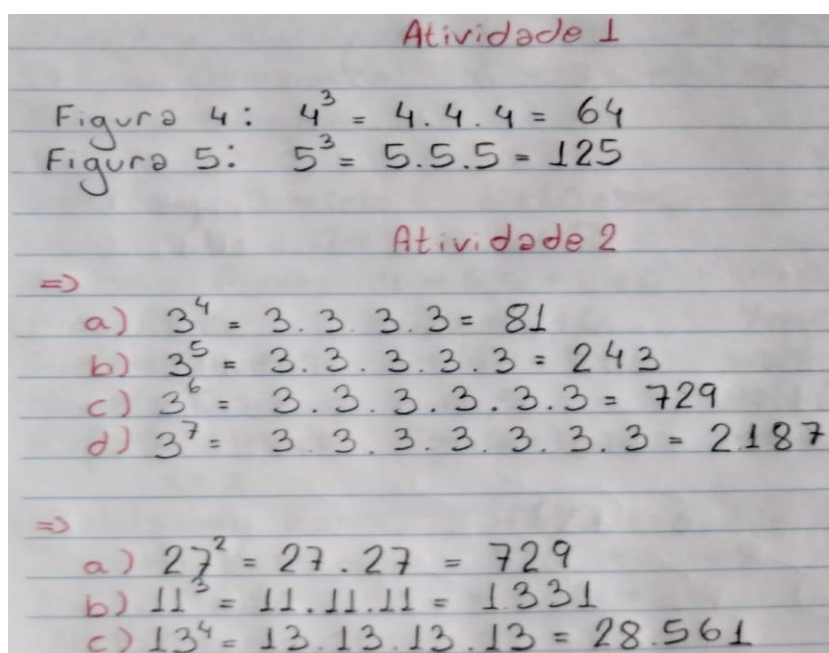 Atividade 1
Figura 4: 4³ = 4.4.4 = 64
Figura 5: 5³ = 5.5.5 = 125
Atividade 2
=>
a) 3⁴ = 3.3.3.3 = 81
b) 3⁵ = 3.3.3.3.3 = 243
c) 3⁶ = 3.3.3.3.3.3 = 729
d) 3⁷ = 3.3.3.3.3.3.3 = 2187
=>
a) 27² = 27.27 = 729
b) 11³ = 11.11.11 = 1331
c) 13⁴ = 13.13.13.13 = 28.561